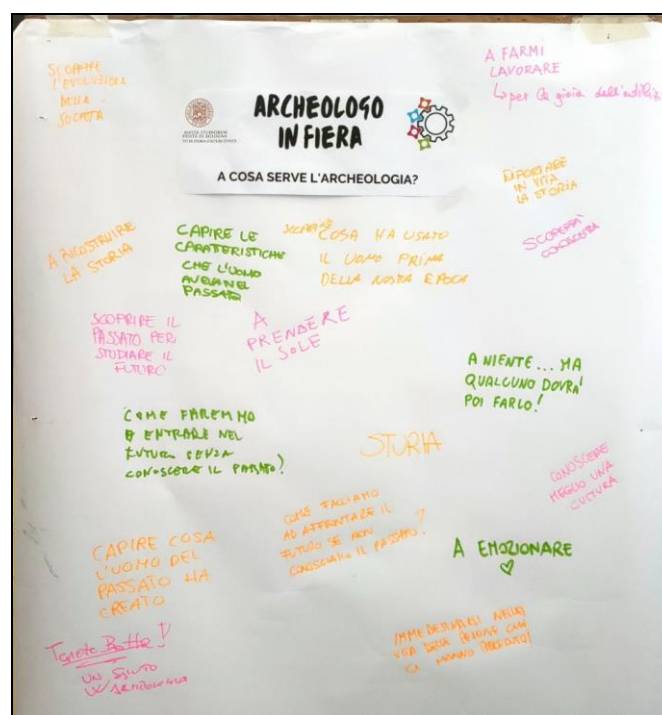 SCOPRIRE
L'EVOLUZIONE
DELLA
SOCIETÀ
A FARMI
LAVORARE
↳ per la gioia dell'
ARCHEOLOGO
IN FIERA
A COSA SERVE L'ARCHEOLOGIA?
RIPORTARE
IN VITA
LA STORIA
A RICOSTRUIRE
LA STORIA
CAPIRE LE
CARATTERISTICHE
CHE L'UOMO
AVEVA NEL
PASSATO
SCOPRIRE COSA HA USATO
IL UOMO PRIMA
DELLA NOSTA EPOCA
SCOPERTA
CONOSCENZA
SCOPRIRE IL
PASSATO PER
STUDIARE IL
FUTURO
A
PRENDERE
IL SOLE
A NIENTE... MA
QUALCUNO DOVRA'
POI FARLO!
COME FAREMMO
A ENTRARE NEL
FUTURO SENZA
CONOSCERE IL PASSATO?
STORIA
CONOSCERE
MEGLIO UNA
CULTURA
COME FACCIAMO
AD AFFRONTARE IL
FUTURO SE NON
CONOSCIAMO IL PASSATO?
CAPIRE COSA
L'UOMO DEL
PASSATO HA
CREATO
A EMOZIONARE
Tenete Botta!
UN SALUTO
IMMEDESIMARSI NELLA
VITA DELLE PERSONE CHE
CI HANNO PRECEDUTO!